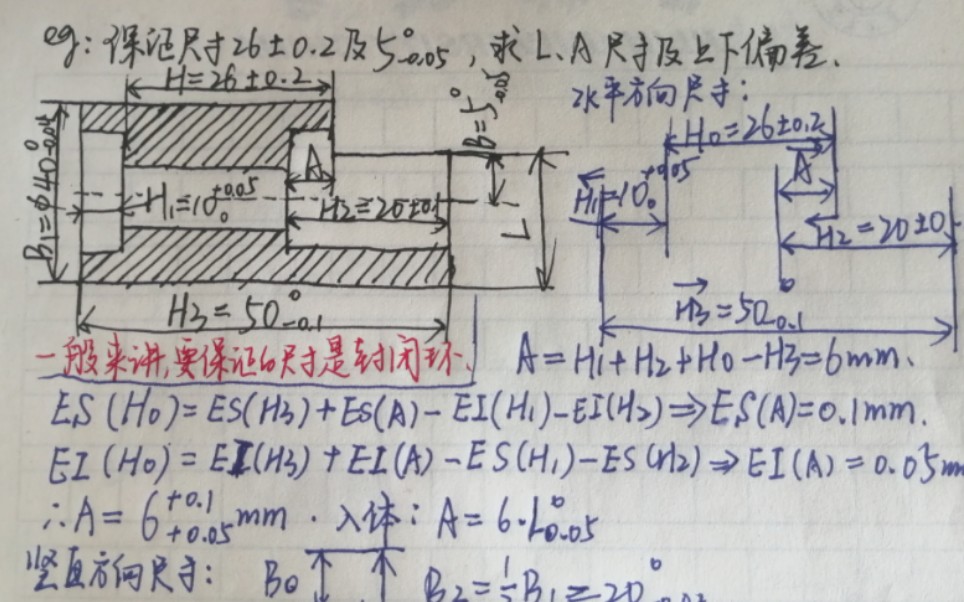 eg: 保证尺寸26±0.2及5⁰₋₀.₀₅, 求L、A尺寸及上下偏差.
H=26±0.2
B=5⁰₋₀.₀₅
水平方向尺寸:
H0=26±0.2
A
A
H1=10⁺⁰·⁰⁵₀
H1=10⁺⁰·⁰⁵₀
H2=20±0.1
L
H2=20±0.
B1=φ40⁰
H3=50⁰₋₀.₁
H3=50⁰₋₀.₁
一般来讲,要保证的尺寸是封闭环.
A=H1+H2+H0-H3=6mm.
ES(H0)=ES(H3)+ES(A)-EI(H1)-EI(H2)⇒ES(A)=0.1mm.
EI(H0)=EI(H3)+EI(A)-ES(H1)-ES(H2)⇒EI(A)=0.05m
∴A=6⁺⁰·¹₊₀.₀₅mm. 入体: A=6.1⁰₋₀.₀₅
竖直方向尺寸: B0 B2=½B1=20⁰